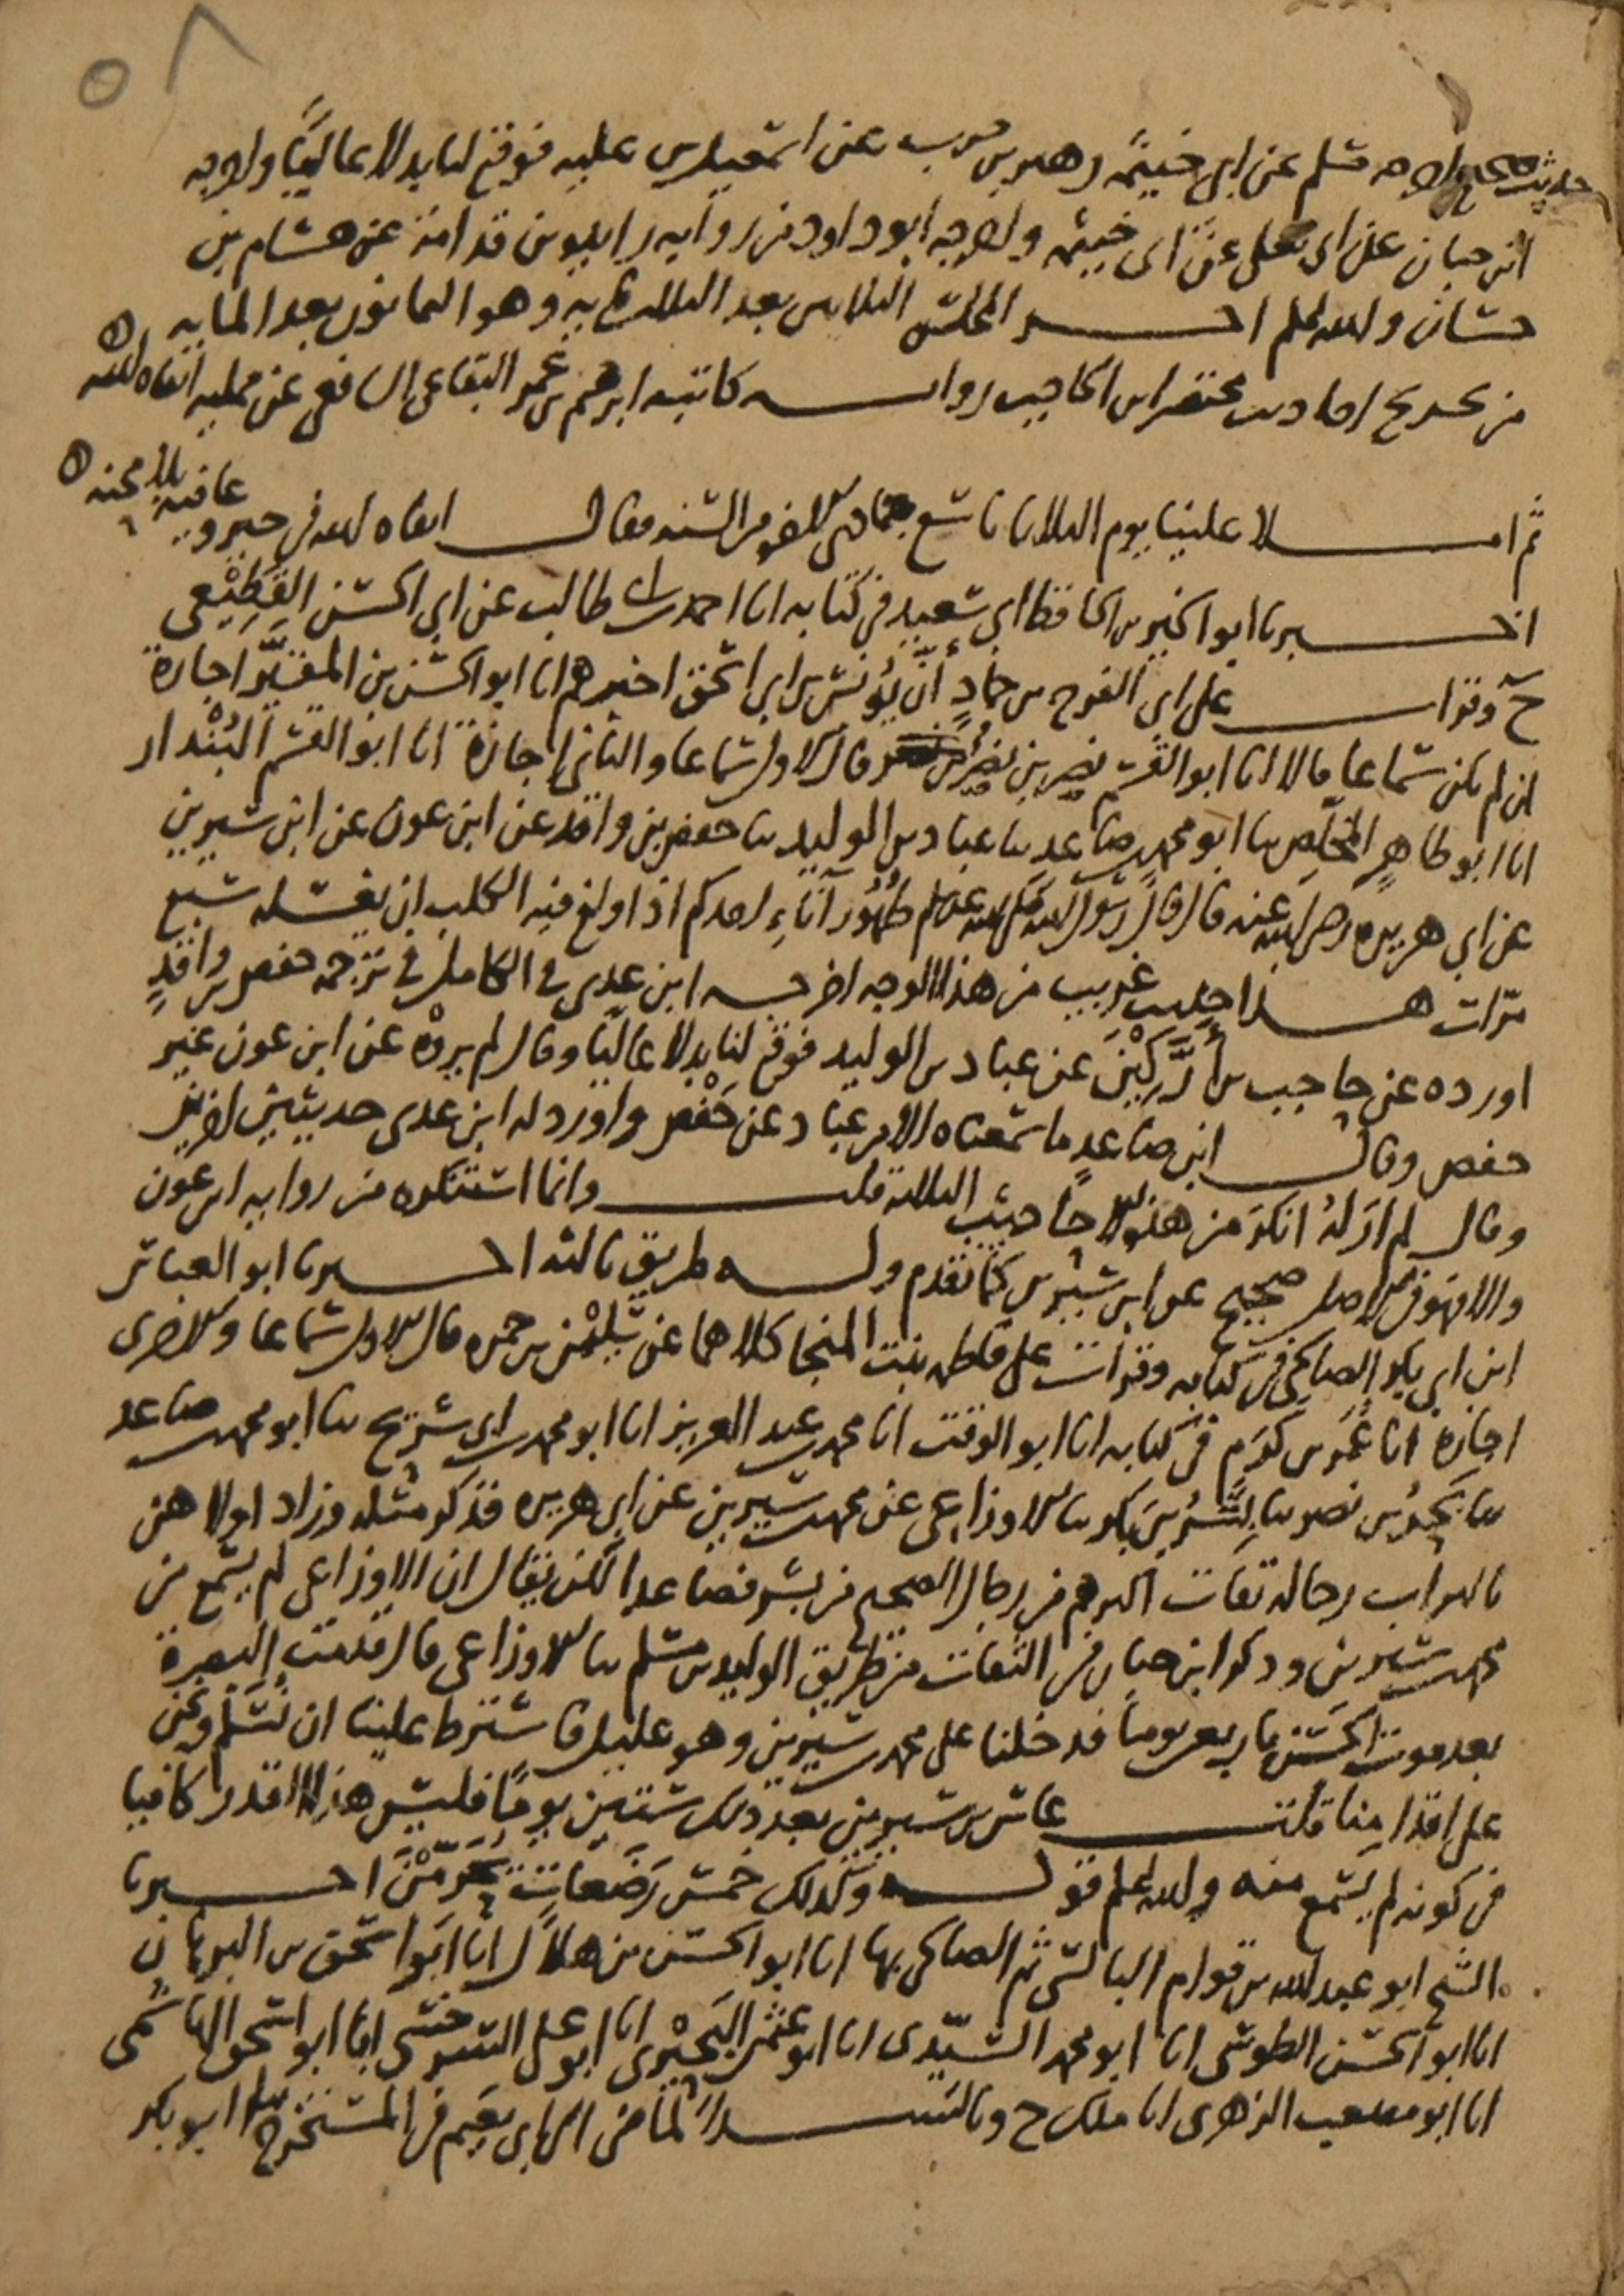 ٥٨
حديث صحيح اخرجه مسلم عن ابي خيثمة زهير بن حرب عن اسمعيل بن علية فوقع لنا بدلا عاليا واخرجه
ابن حبان عن ابي يعلى عن ابي خيثمة واخرجه ابو داود من رواية زايدة بن قدامة عن هشام بن
حسان والله اعلم اخر المجلس الثلاثين بعد الثلاثمايه وهو الثمانون بعد المايه
من تخريج احاديث مختصر ابن الحاجب رواية كاتبه ابرهيم بن عمر البقاعي الشافعي عن ممليه ابقاه الله
ثم املا علينا يوم الثلاثا تاسع جمادى الاخرة من السنه فقال ابقاه الله في خير و عافيه بلا محنه
اخبرنا ابو الخير بن الحافظ ابي سعيد في كتابه انا احمد بن ابي طالب عن ابي الحسن القطيعي
ح وقرات على ابي الفرج بن حماد أن يونس بن ابي اسحق اخبرهم انا ابو الحسن بن المقير اجازة
ان لم يكن سماعا قالا انا ابو القسم نصر بن نصر قال الاول سماعا والثاني اجازة انا ابو القسم البندار
انا ابو طاهر المخلص ثنا ابو محمد بن صاعد ثنا عباد بن الوليد ثنا حفص بن واقد عن ابن عون عن ابن سيرين
عن ابي هريره رضي الله عنه قال قال رسول الله صلى الله عليه وسلم طهور اناء احدكم اذا ولغ فيه الكلب ان يغسله سبع
مرات هذا حديث غريب من هذا الوجه اخرجه ابن عدي في الكامل في ترجمة حفص بن واقد
اورده عن حاجب بن أركين عن عباد بن الوليد فوقع لنا بدلا عاليا وقال لم يروه عن ابن عون غير
حفص وقال ابن صاعد ما سمعناه الا من عباد عن حفص واورد له ابن عدي حديثين اخرين
وقال لم ار له انكر من هذه الاحاديث الثلاثة قلت وانما استنكره من رواية ابن عون
والا فهو في الاصل صحيح عن ابن سيرين كما تقدم وله طريق ثالثه اخبرنا ابو العباس
ابن ابي بكر الصالحي في كتابه وقرات على فاطمه بنت المنجا كلاهما عن سليمن بن حمزه قال الاول سماعا والاخرى
اجازة انا عمر بن كرم في كتابه انا ابو الوقت انا محمد بن عبد العزيز انا ابو محمد بن ابي شريح ثنا ابو محمد بن صاعد
ثنا بحر بن نصر ثنا بشر بن بكر ثنا الاوزاعي عن محمد بن سيرين عن ابي هريره فذكر مثله وزاد اولاهن
بالتراب رجاله ثقات اكثرهم من رجال الصحيح من بشر فصاعدا لكن يقال ان الاوزاعي لم يسمع من
محمد بن سيرين وذكر ابن حبان في الثقات من طريق الوليد بن مسلم ثنا الاوزاعي قال قدمت البصرة
بعد موت الحسن باربعين يوما فدخلنا على محمد بن سيرين وهو عليل فاشترط علينا ان نسلم ونحن
على اقدامنا قلت عاش بن سيرين بعد ذلك ستين يوما فليس هذا القدر كافيا
في كونه لم يسمع منه والله اعلم قوله وكذلك خمس رضعات يحرمن اخبرنا
الشيخ ابو عبد الله بن قوام البالسي ثم الصالحي بها انا ابو الحسن بن هلال انا ابو اسحق بن البرهان
انا ابو الحسن الطوسي انا ابو محمد السيدي انا ابو عثمن البحيري انا ابو علي السرخسي انا ابو اسحق الهاشمي
انا ابو مصعب الزهري انا ملك ح وبالسند الماضي الى ابي نعيم في المستخرج ثنا ابو بكر